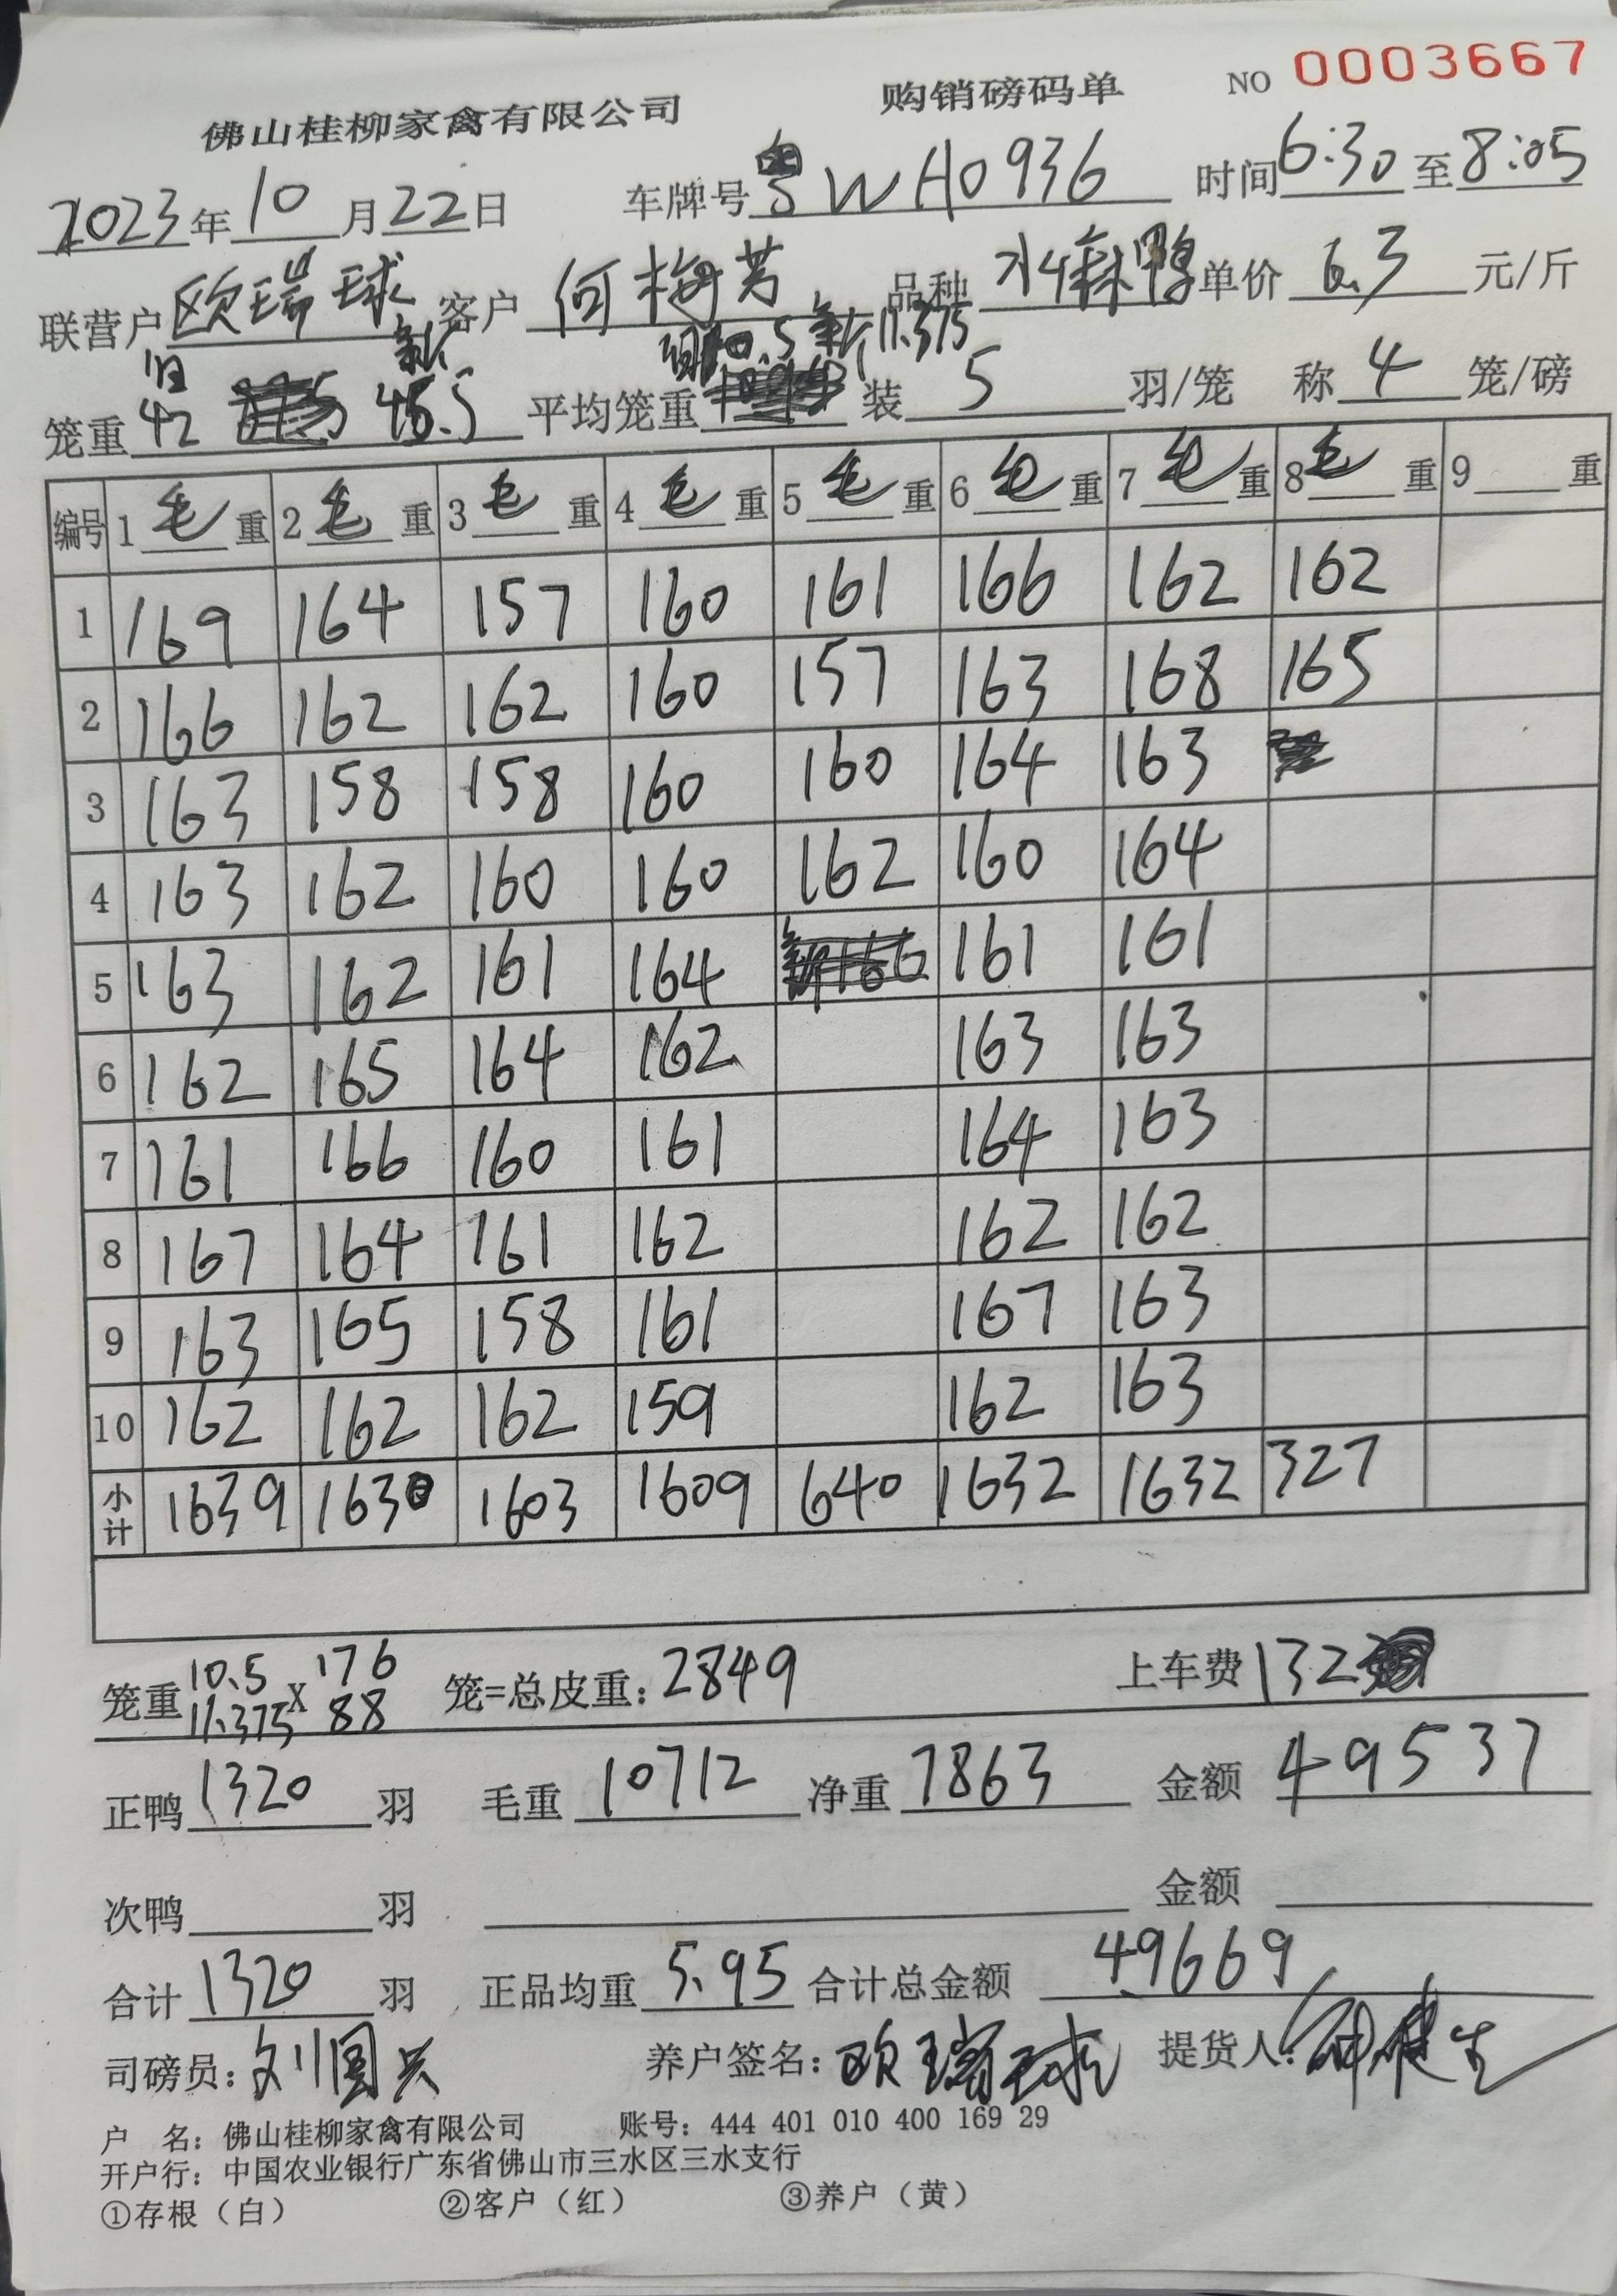 佛山桂柳家禽有限公司 购销磅码单 NO 0003667
2023年10月22日 车牌号粤WH0936 时间6:30至8:05
联营户欧瑞球 客户何梅芳 品种水麻鸭 单价6.3元/斤
旧 新 旧10.5 新11.375
笼重42 45.5 平均笼重 装5羽/笼 称4笼/磅
编号 1毛重 2毛重 3毛重 4毛重 5毛重 6毛重 7毛重 8毛重 9重
1 169 164 157 160 161 166 162 162
2 166 162 162 160 157 163 168 165
3 163 158 158 160 160 164 163
4 163 162 160 160 162 160 164
5 163 162 161 164 161 161
6 162 165 164 162 163 163
7 161 166 160 161 164 163
8 167 164 161 162 162 162
9 163 165 158 161 167 163
10 162 162 162 159 162 163
小计 1639 1630 1603 1609 640 1632 1632 327
10.5 176
笼重 X 笼=总皮重：2849 上车费132
11.375 88
正鸭1320羽 毛重10712 净重7863 金额49537
次鸭 羽 金额
合计1320羽 正品均重5.95 合计总金额49669
司磅员：刘国兴 养户签名：欧瑞球 提货人：
户 名：佛山桂柳家禽有限公司 账号：444 401 010 400 169 29
开户行：中国农业银行广东省佛山市三水区三水支行
①存根（白） ②客户（红） ③养户（黄）